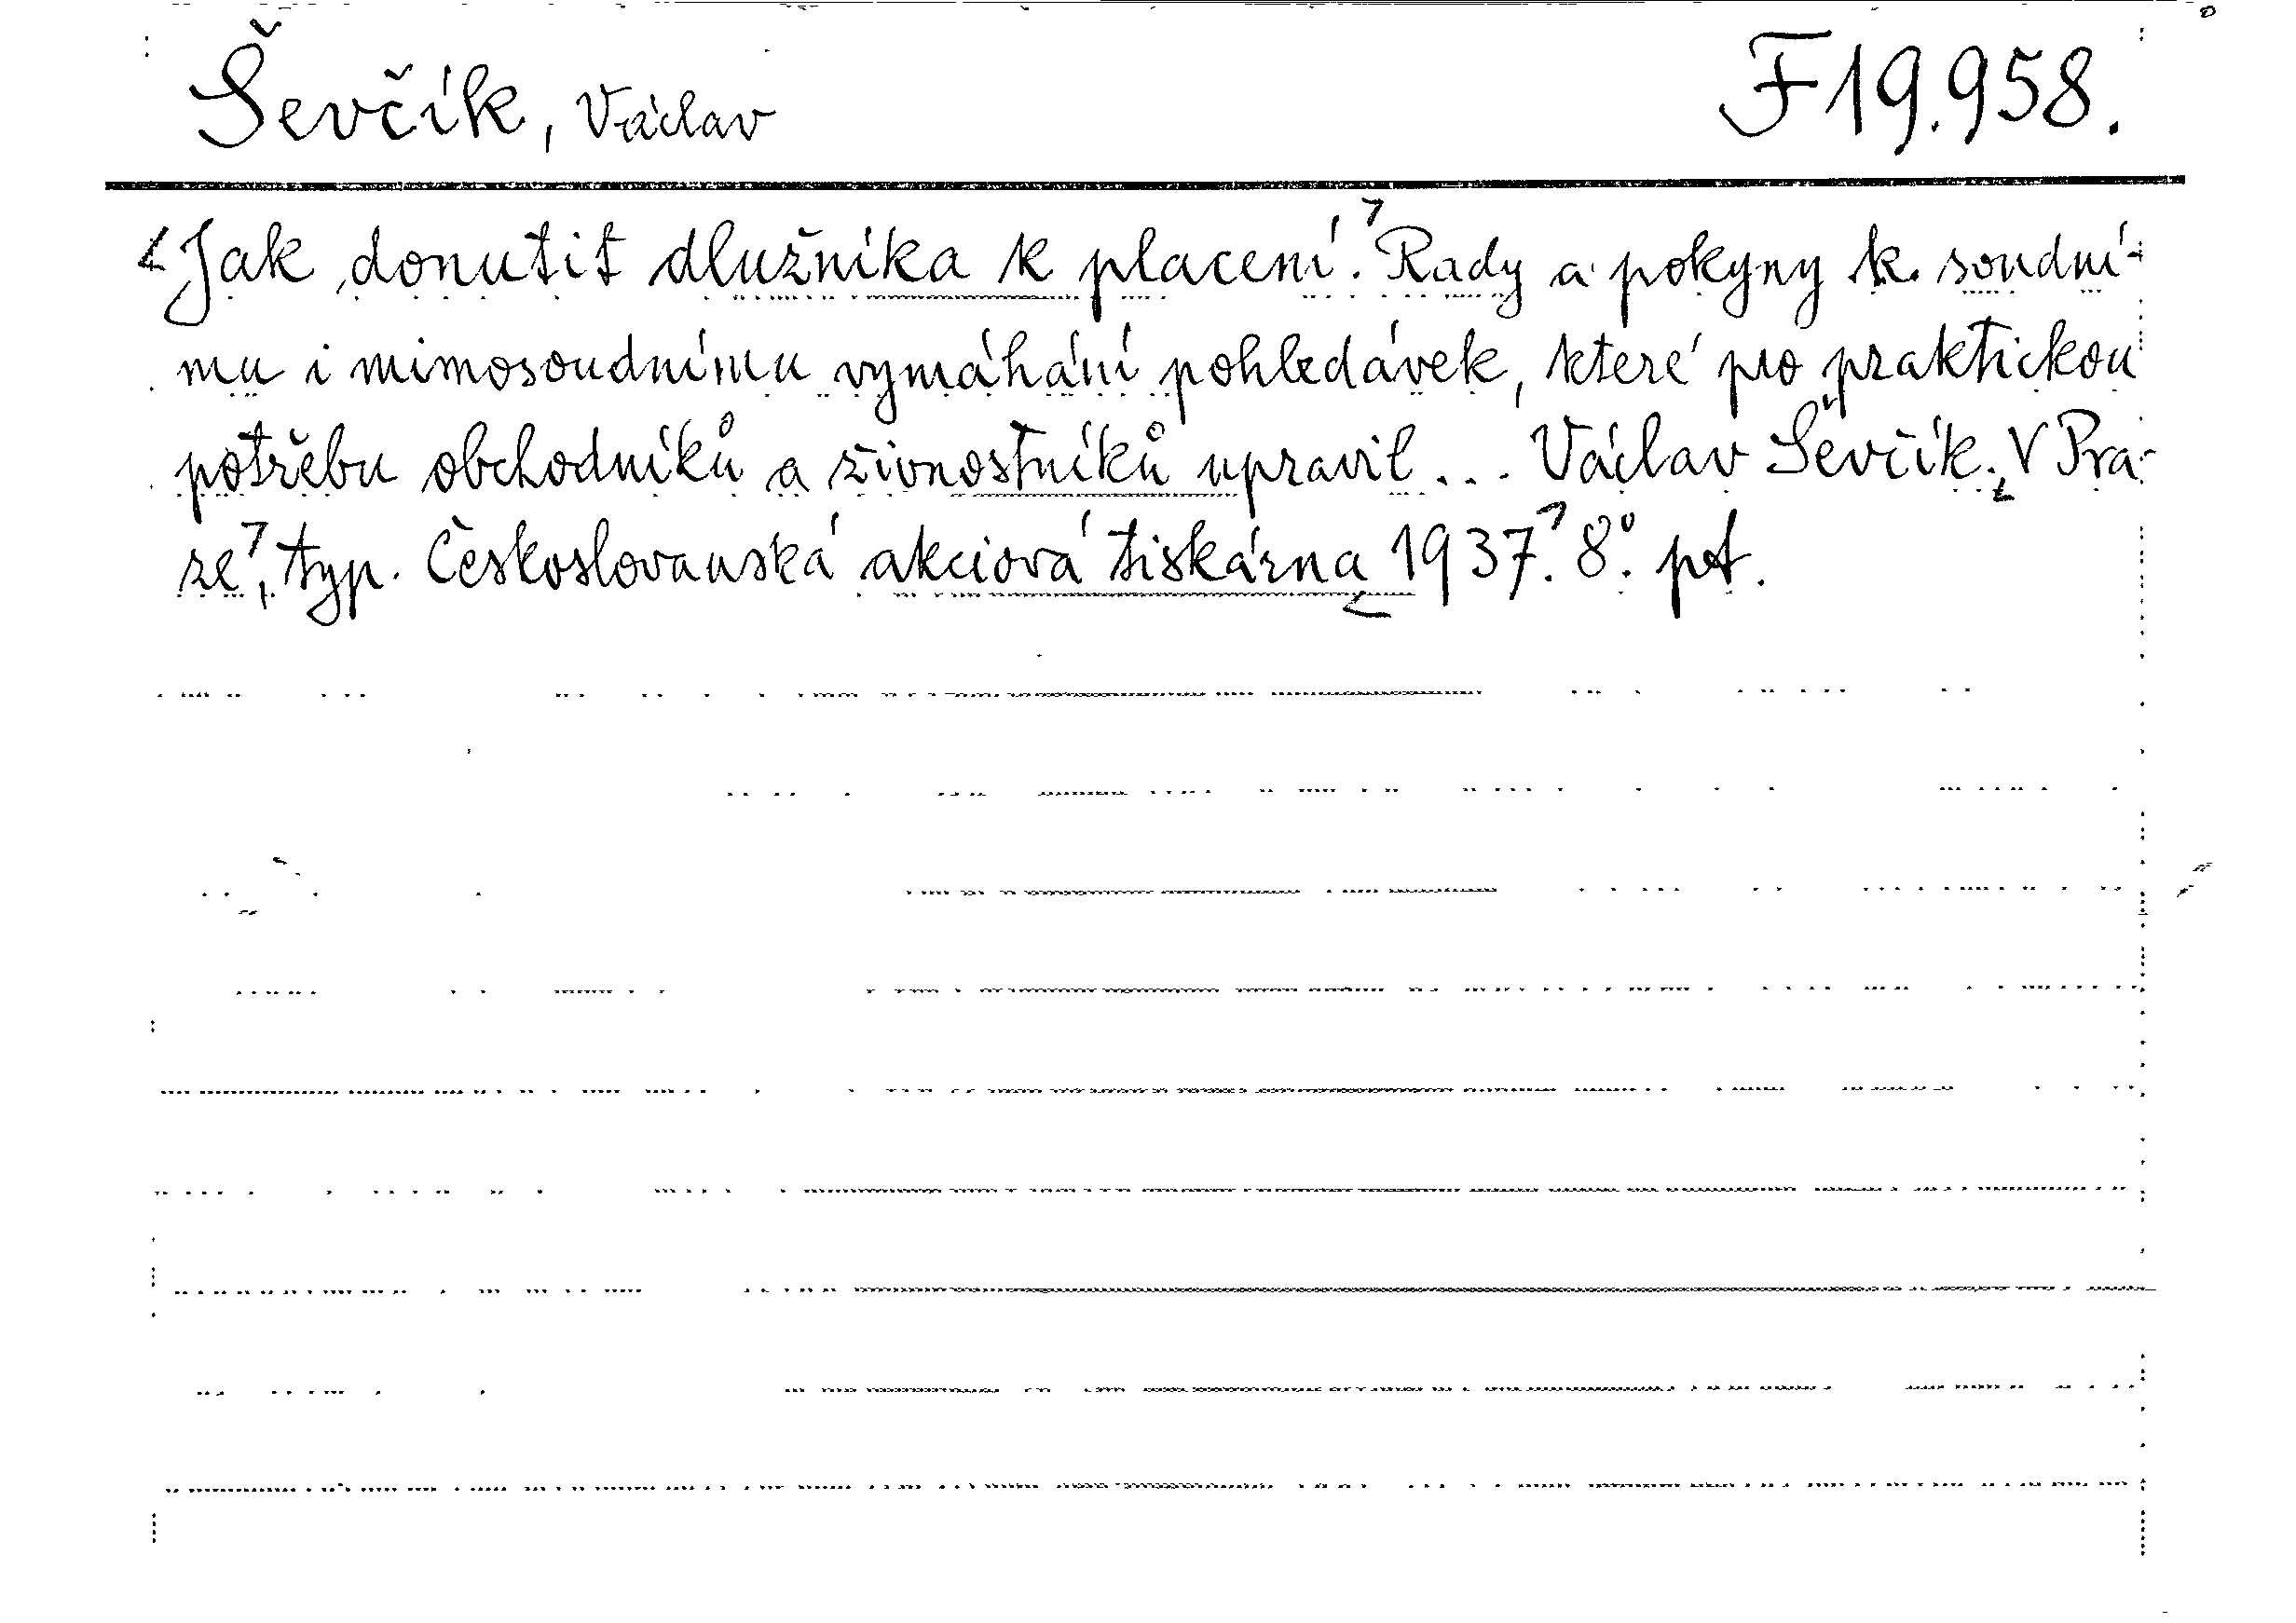 Ševčík, Václav
F 19.958.
Jak donutit dlužníka k placení. Rady a pokyny k soudní-
mu i mimosoudnímu vymáhání pohledávek, které pro praktickou
potřebu obchodníků a živnostníků upravil ... Václav Ševčík. V Pra-
ze, typ. Českoslovanská akciová tiskárna 1937. 8°. pt.